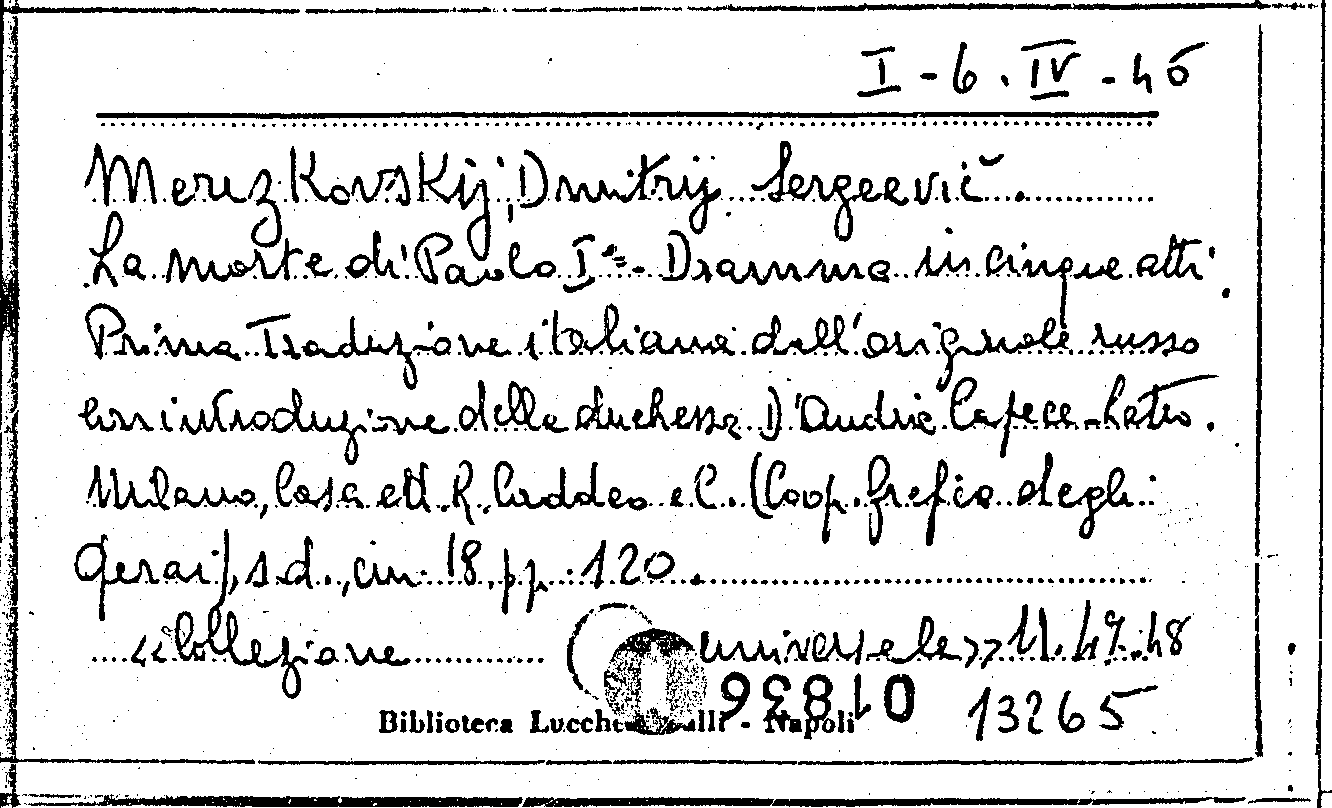 I - 6. IV - 46
Merezkovskij, Dmitrij Sergeevič.
La morte di Paolo I°=. Dramma in cinque atti.
Prima Traduzione italiana dell'originale russo
con introduzione della duchessa D'Andria Capece-Latro.
Milano, Casa ed. R. Caddeo e C. (Coop. grafica degli
Operai), s.d., cm. 18, pp. 120.
«Collezione universale» N. 47-48
01836 13265
Biblioteca Lucchesi Palli - Napoli